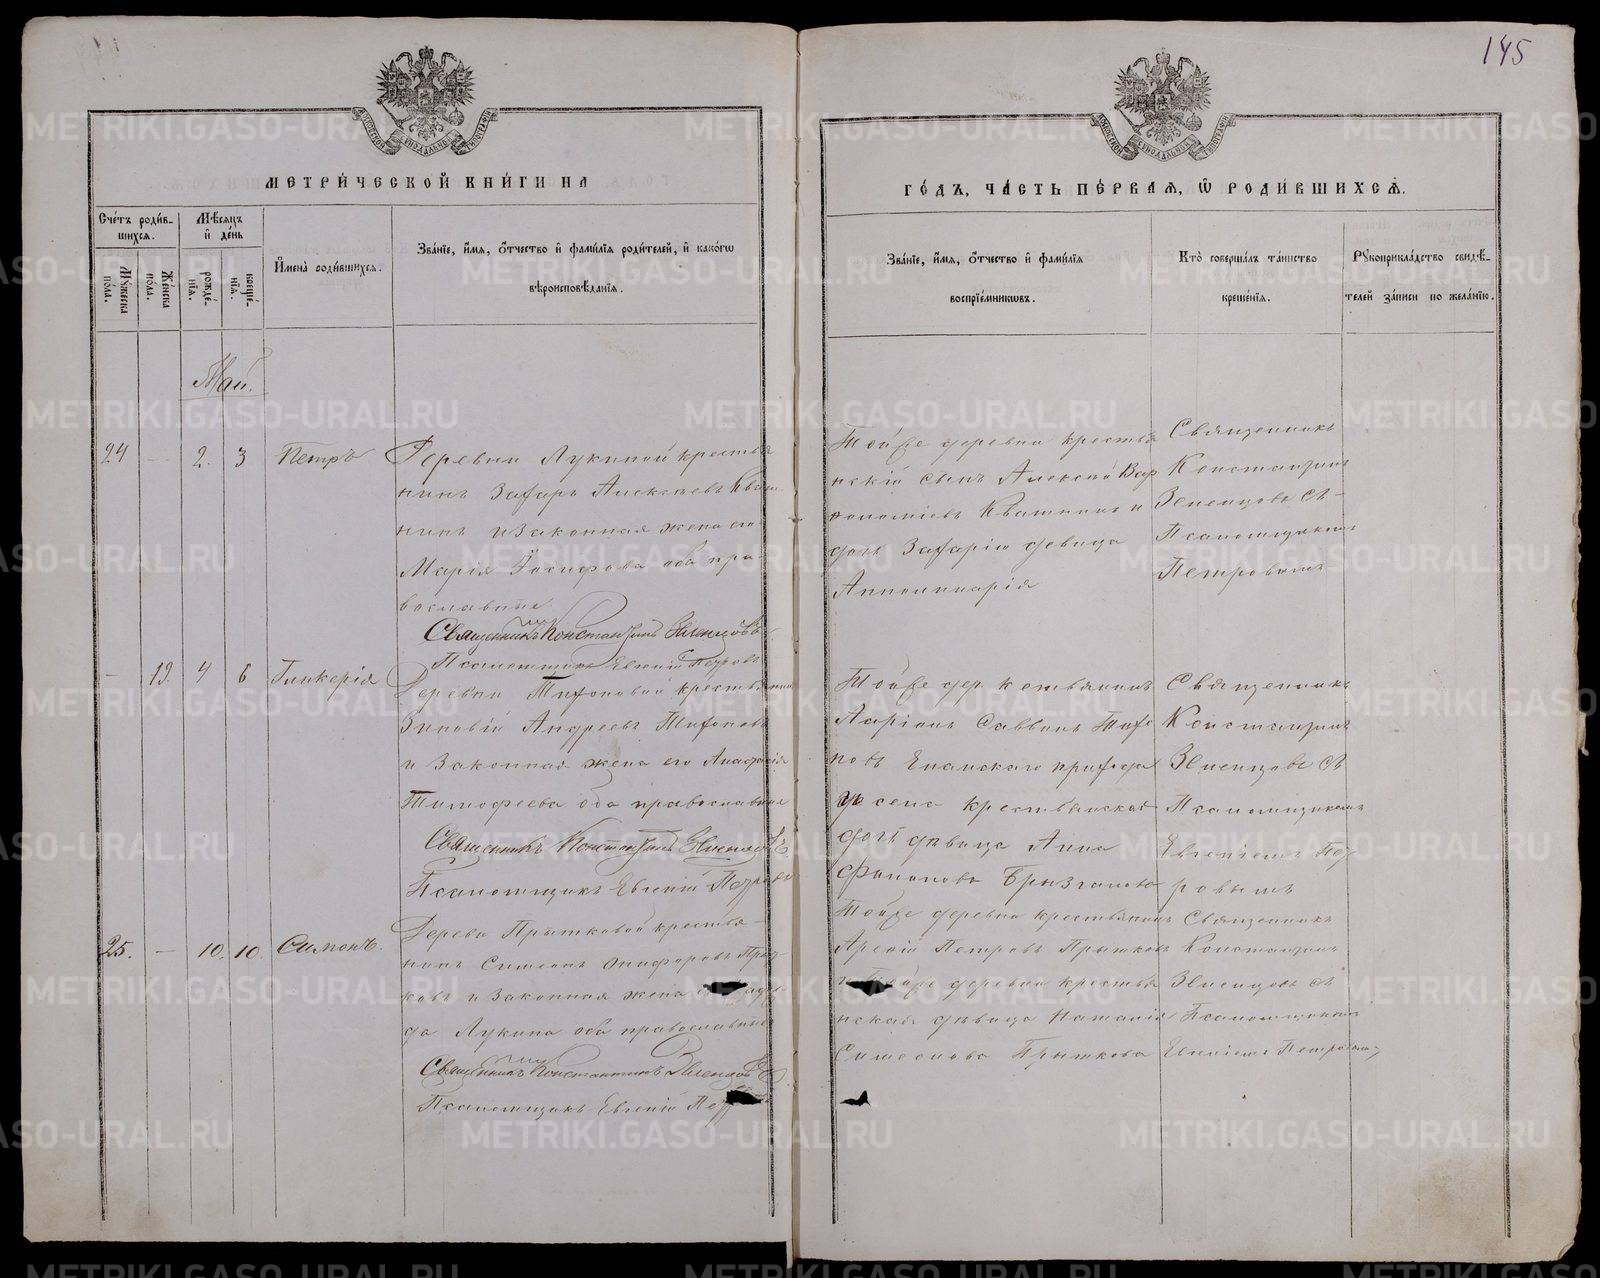 145
МЕТРИ́ЧЕСКОЙ КНИ́ГИ НА
ГО́ДЪ, ЧА́СТЬ ПЕ́РВАЯ, Ѡ РОДИ́ВШИХСѦ.
Сче́тъ роди́в-
шихся.
Мѣсяцъ
и҆ де́нь
Мꙋжеска по́ла.
Же́нска по́ла.
рожде́-
нїѧ.
креще́-
нїѧ.
И҆мена̀ роди́вшихся.
Зва́нїе, и҆́мѧ, ѻ҆́тчество и҆ фами́лїѧ роди́телей, и҆ како́гѡ
вѣроисповѣ́данїѧ.
Зва́нїе, и҆́мѧ, ѻ҆́тчество и҆ фами́лїѧ
воспрїе́мникѡвъ.
Кто̀ соверша́лъ та́инство
креще́нїѧ.
Рꙋкоприкла́дство свидѣ́-
телей за́писи по жела́нїю.
Май.
24 — 2. 3 Петръ
Деревни Лукиной крестья
нинъ Захаръ Алексѣевъ Кваш
нинъ и законная жена его
Марія Іосифова оба пра
вославные
Священникъ Константинъ
Псаломщикъ Евгеній Петровъ
Тойже деревни крестья
нскій сынъ Алексей Вар
Квашнинъ и
дочь Захарія девица
Священникъ
Константинъ
съ
Псаломщикомъ
Петровымъ
— 19. 4 6 Гликерія
Деревни Тихоновой крестьянинъ
Зиновій Андреевъ Тихоновъ
и законная жена его
Тимофеева оба православные
Священникъ Константинъ
Псаломщикъ Евгеній Петровъ
Тойже дер.
Ларіонъ Саввинъ Тихо
новъ Еланскаго прихода
села крестьянская
дочь дѣвица Анна
Священникъ
Константинъ
съ
Псаломщикомъ
Евгеніемъ Пет
ровымъ
25. — 10. 10. Симонъ.
Дерев Прытковой крестья-
нинъ Симеонъ Пры
ковъ и законная жена
Лукина оба православные
Священникъ Константинъ
Псаломщикъ Евгеній
Тойже деревни крестьянинъ
Арсеній Петровъ Прытковъ
деревни крестья
нская дѣвица Наталія
Симеонова Прыткова
Священникъ
Константинъ
съ
Псаломщикомъ
Евгеніемъ Петровымъ
METRIKI.GASO-URAL.RU